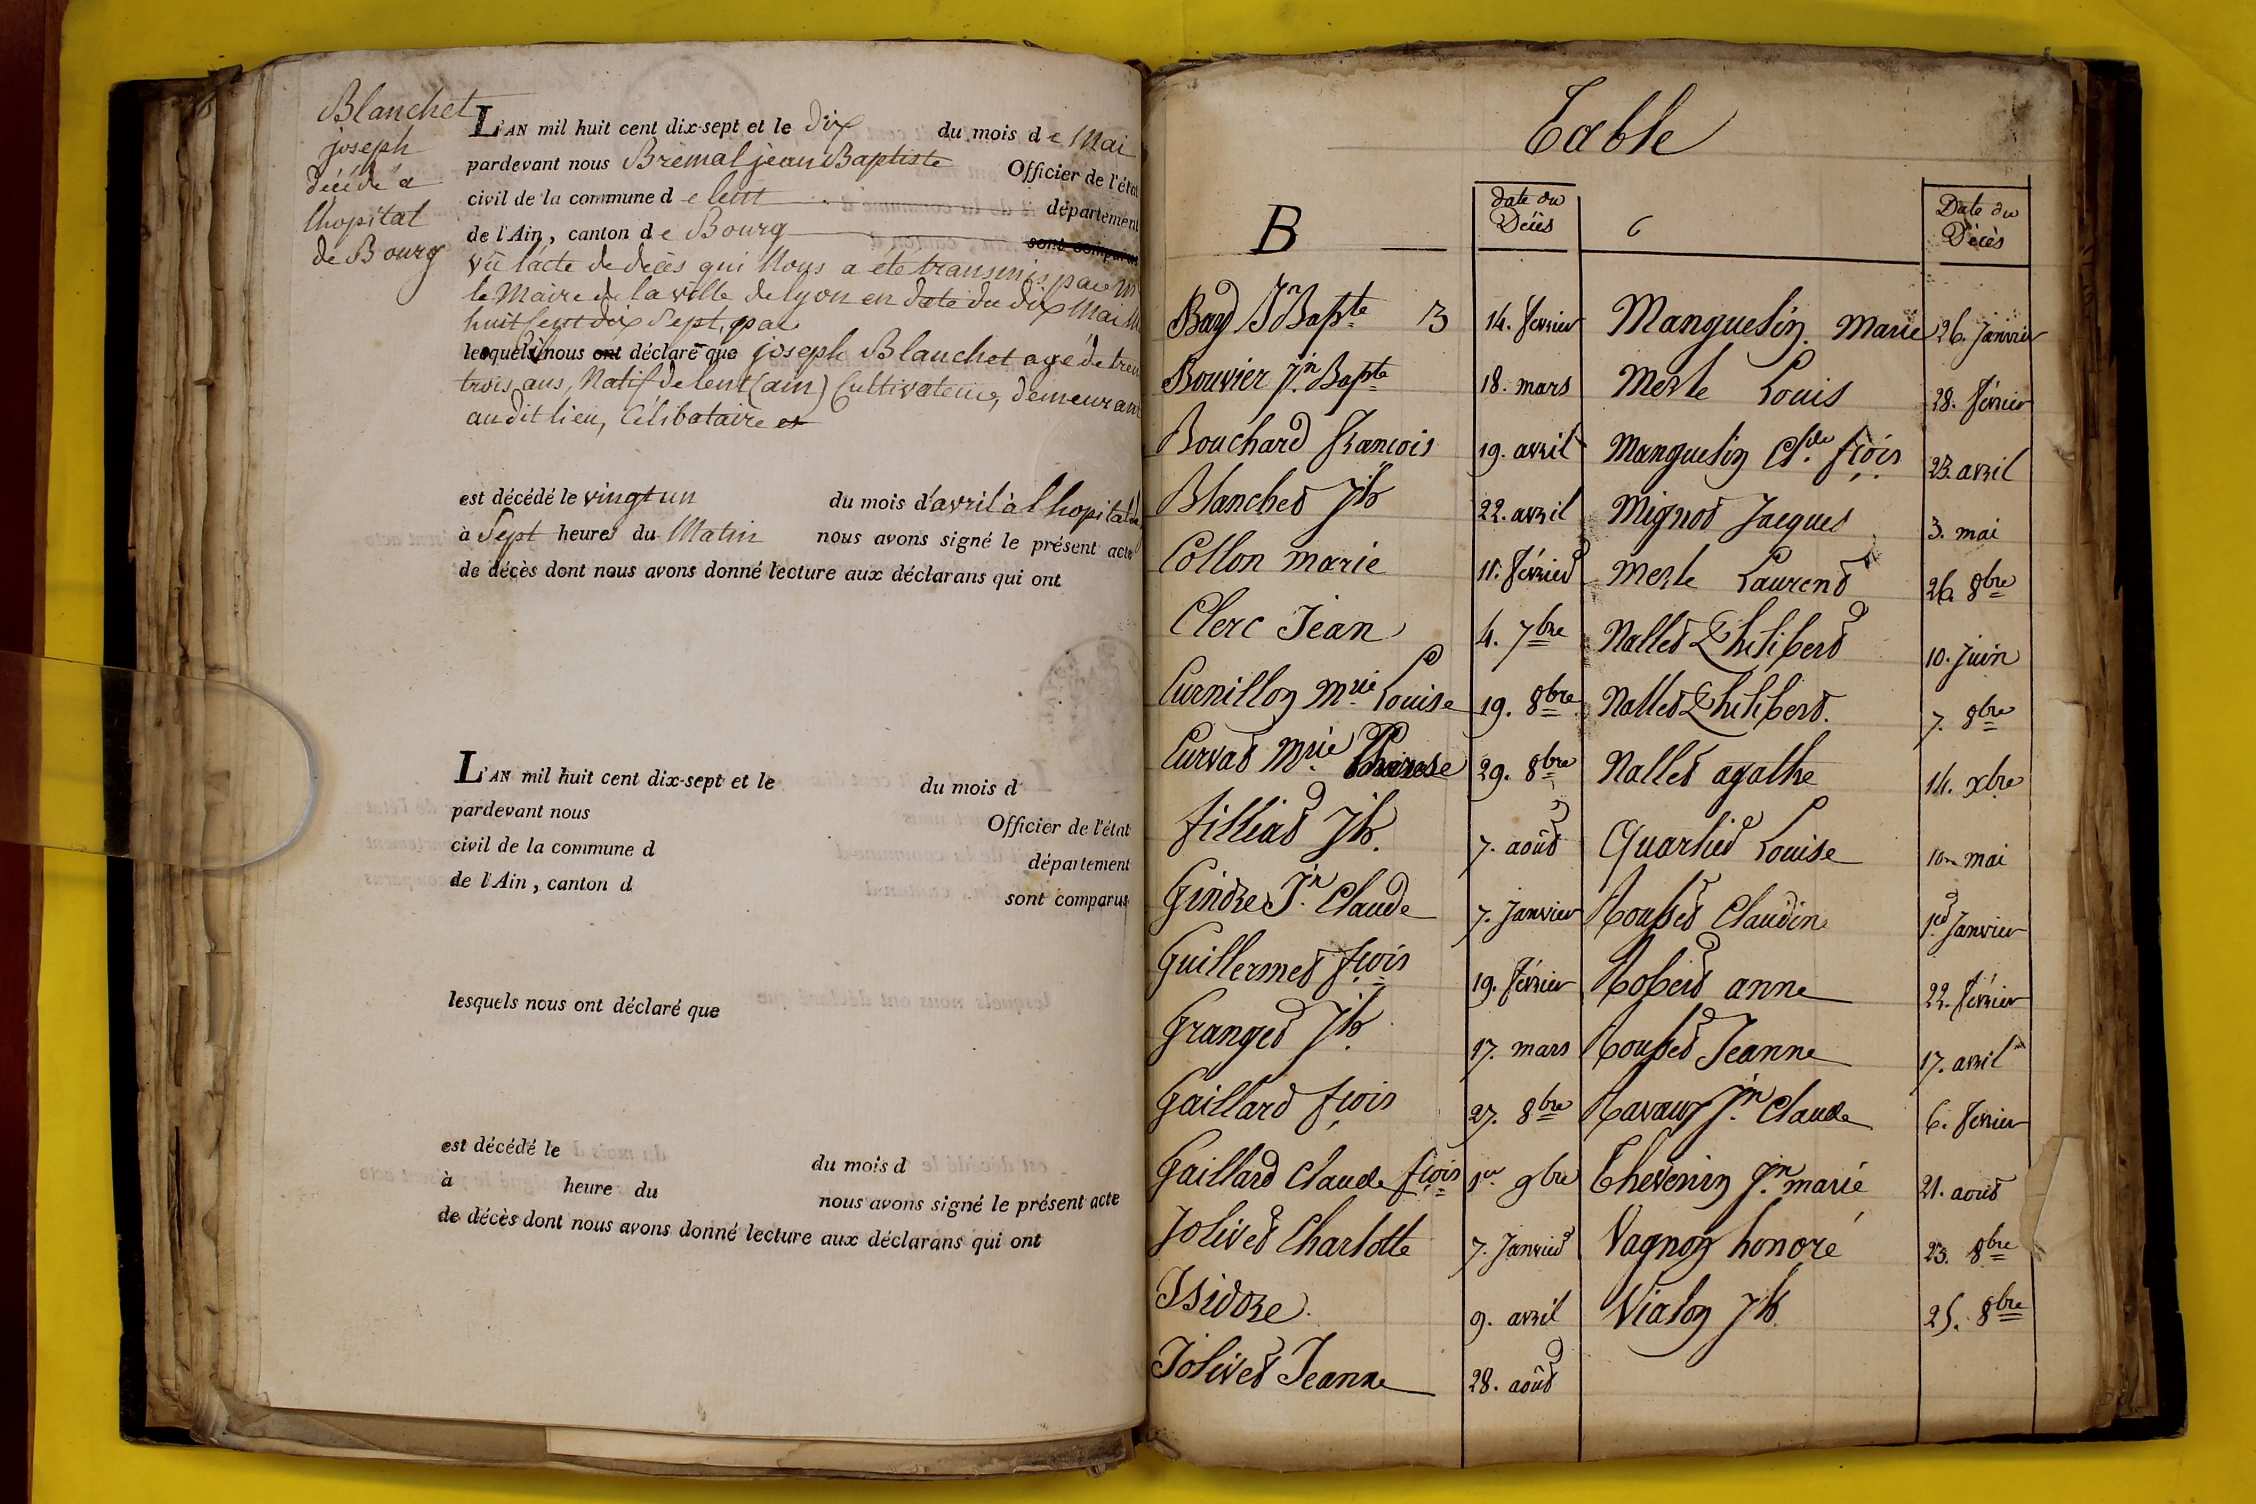 Blanchet
joseph
décédé a
lhopital
de Bourg
L'AN mil huit cent dix-sept et le dix du mois de Mai
pardevant nous Brémal jean Baptiste Officier de l'état
civil de la commune de lent département
de l'Ain, canton de Bourg sont comparus
vû lacte de décès qui Nous a eté transmis par
le Maire de la ville de lyon en date du dix Mai
huit Cent dix Sept, par
lesquels nous ont déclaré que joseph Blanchet agé de tren
trois ans, Natif de lent (ain) Cultivateur, demeurant
audit lieu, Célibataire et
est décédé le vingt un du mois d'avril à l hopital
à Sept heures du Matin nous avons signé le présent acte
de décès dont nous avons donné lecture aux déclarans qui ont
L'AN mil huit cent dix-sept et le du mois d
pardevant nous Officier de l'état
civil de la commune d département
de l'Ain, canton d sont comparus
lesquels nous ont déclaré que
est décédé le du mois d
à heure du nous avons signé le présent acte
de décès dont nous avons donné lecture aux déclarans qui ont
Table
B date du Décès
Date du Décès
Bayd Jn Bapte 3 14. fevrier
Bouvier Jn Bapte 18. mars
Bouchard francois 19. avril
Blanchet Jh 22. avril
Collon marie 11. février
Clerc Jean 4. 7bre
Curnillon Mrie Louise 19. 8bre
Curvat Mrie Thérese 29. 8bre
filliat Jh. 7. août
Gindre Jn Claude 7. Janvier
Guillermet fçois 19. février
Granget Jh. 17. mars
Gaillard fçois 27. 8bre
Gaillard Claude fçois 1er 9bre
Jolivet Charlotte 7. Janvier
Isidore. 9. avril
Jolivet Jeanne 28. août
Manguelin Marie 26. Janvier
Merle Louis 28. février
Manguelin Clde fçois 23. avril
Mignot Jacques 3. mai
Merle Laurent 26. 8bre
Nallet Philibert 10. Juin
Nallet Philibert. 7. 8bre
Nallet agathe 14. xbre
Quartier Louise 10. mai
Rousset Claudine 1er Janvier
Robert anne 22. février
Rousset Jeanne 17. avril
Ravaux Jn Claude 6. fevrier
Thevenin Jn marie 21. aout
Vagnon honoré 23. 8bre
Vialon Jh. 25. 8bre